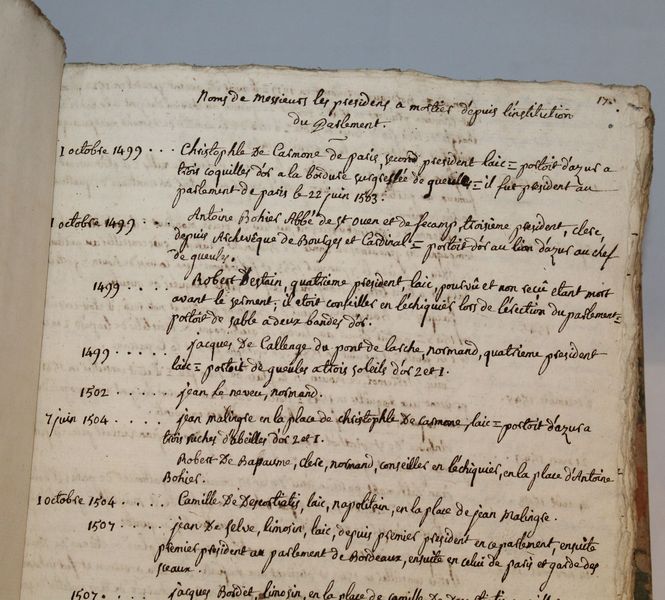 17.
Noms de messieurs les presidens a mortier depuis l'institution
du Parlement.
1 octobre 1499 . . . Christophle De Carmone de paris, second president laic = portoit d'azur a
trois coquilles d'or a la bordure de gueules = il fut president au
parlement de paris le 22 juin 1503.
1 octobre 1499 . . . Antoine Bohier Abbé de st ouen et de fecamp, troisieme president, clerc,
depuis Archevêque de Bourges et Cardinal = portoit d'or au lion d'azur au chef
de gueules.
1499 . . . . Robert Destain, quatrieme president, laic, pourvû et non recû etant mort
avant le serment. il etoit conseiller en l'échiquier lors de l'érection du parlement =
portoit de sable a deux bandes d'or.
1499 . . . . . jacques De Callenge du pont de larche, normand, quatrieme president
laic = portoit de gueules a trois soleils d'or 2 et 1.
1502 . . . . . jean Le neveu, normand.
7 juin 1504 . . . . jean malingre en la place de christophle De carmone, laic = portoit d'azur a
trois ruches d'abeilles d'or 2 et 1.
Robert De Bapaume, clerc, normand, conseiller en l'échiquier, en la place d'Antoine
Bohier.
1 octobre 1504 . . . . Camille De laic, napolitain, en la place de jean Malingre.
1507 . . . . . jean De selve, limosin, laic, depuis premier president en ce parlement, ensuite
premier president au parlement de Bordeaux, ensuite en celui de paris et garde des
sceaux.
1507 . . . . . jacques Bordet, limosin, en la place de camille De